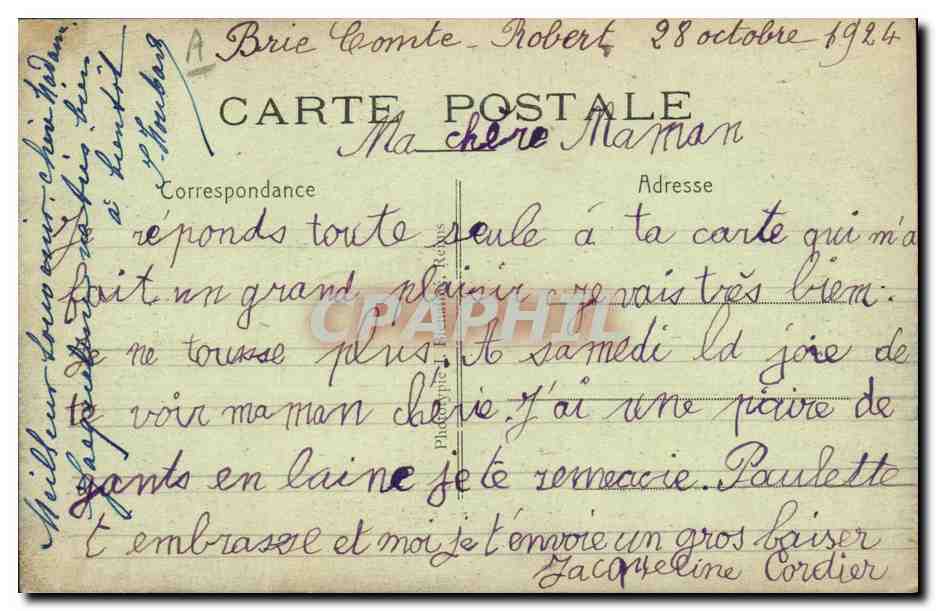 A
Brie Comte-Robert, 28 octobre 1924
CARTE POSTALE
Ma chère Maman
Correspondance
Adresse
Je réponds toute seule à ta carte qui m'a
fait un grand plaisir, je vais très bien.
Je ne tousse plus. A samedi la joie de
te voir maman chérie. J'ai une paire de
gants en laine je te remercie. Paulette
t'embrasse et moi je t'envoie un gros baiser
Jacqueline Cordier
Meilleur souvenir chère Madame
Jacqueline va très bien
à bientôt
Phototypie J. Bienaimé, Reims
CPAPHIL